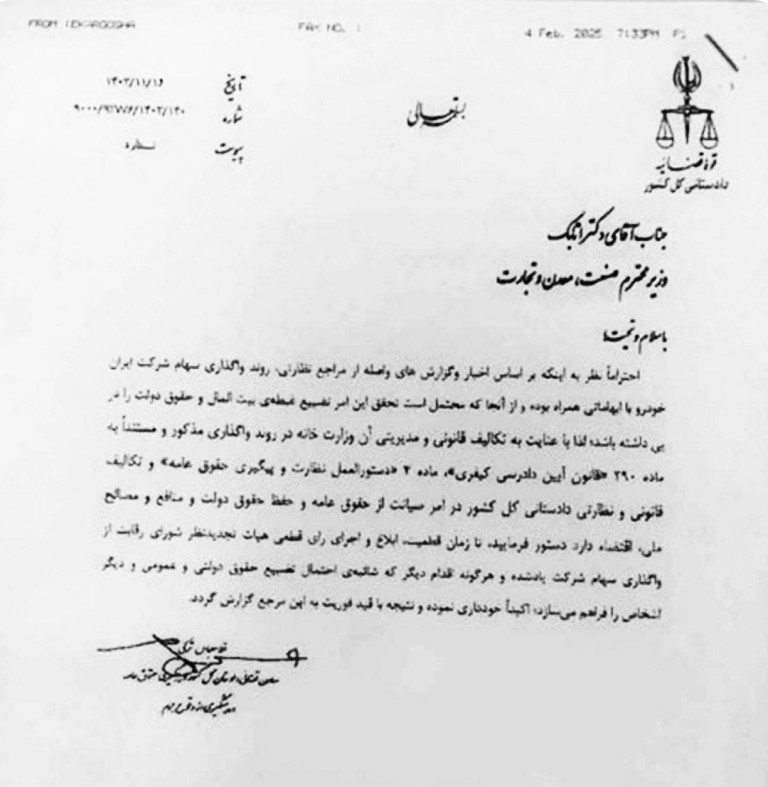 FROM :
FAX NO. :
4 Feb. 2025 7:33PM P1
بسمه تعالی
قوه قضائیه
دادستانی کل کشور
تاریخ ۱۴۰۳/۱۱/۱۶
شماره ۹۰۰۰/۹۲۷۷۶/۱۴۰۳/۱۴۰
پیوست ندارد
جناب آقای دکتر اتابک
وزیر محترم صنعت، معدن و تجارت
با سلام و تحیت؛
احتراماً نظر به اینکه بر اساس اخبار وگزارش های واصله از مراجع نظارتی، روند واگذاری سهام شرکت ایران
خودرو با ابهاماتی همراه بوده و از آنجا که محتمل است تحقق این امر تضییع غبطه‌ی بیت المال و حقوق دولت را در
پی داشته باشد؛ لذا با عنایت به تکالیف قانونی و مدیریتی آن وزارت خانه در روند واگذاری مذکور و مستنداً به
ماده ۲۹۰ «قانون آیین دادرسی کیفری»، ماده ۴ «دستورالعمل نظارت و پیگیری حقوق عامه» و تکالیف
قانونی و نظارتی دادستانی کل کشور در امر صیانت از حقوق عامه و حفظ حقوق دولت و منافع و مصالح
ملی، اقتضاء دارد دستور فرمایید، تا زمان قطعیت، ابلاغ و اجرای رای قطعی هیات تجدیدنظر شورای رقابت از
واگذاری سهام شرکت یادشده و هرگونه اقدام دیگر که شائبه‌ی احتمال تضییع حقوق دولتی و عمومی و دیگر
اشخاص را فراهم می‌سازد، اکیداً خودداری نموده و نتیجه با قید فوریت به این مرجع گزارش گردد.